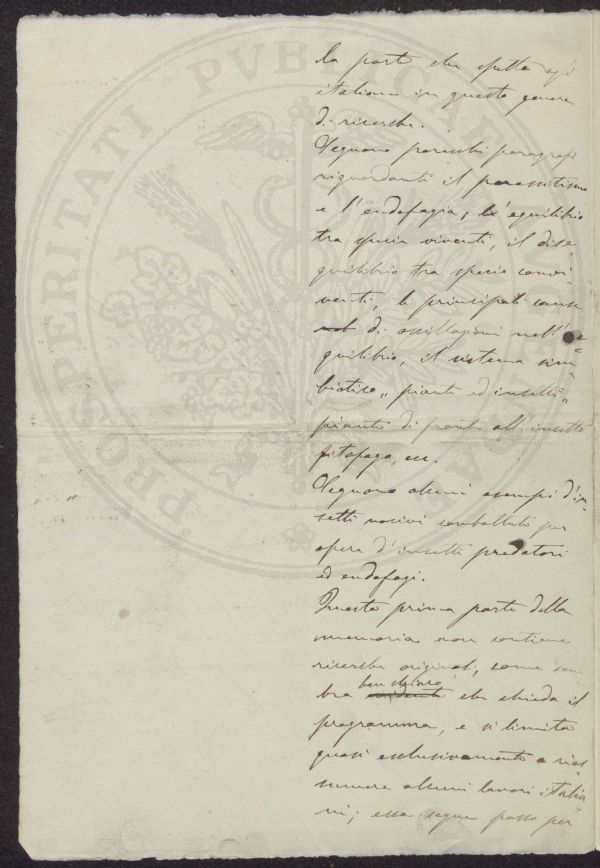 la parte che spetta agli
italiani in questo genere
di ricerche.
Seguono parecchi paragrafi
riguardanti il parassitismo
e l'endofagia, l'equilibrio
tra specie viventi, il dise-
quilibrio tra specie convi-
venti, le principali cause
di oscillazioni nell'e-
quilibrio, il sistema sim-
biotico „ pianti ed insetti „
piante di fronte all'insetto
fitofago, ecc.
Seguono alcuni esempi d'in-
setti nocivi combattuti per
opera d'insetti predatori
ed endofagi.
Questa prima parte della
memoria non contiene
ricerche originali, come sem
bra ben chiaro che chieda il
programma, e si limita
quasi esclusivamente a rias-
sumere alcuni lavori italia
ni; essa segue passo per
PROSPERITATI PVBLICAE